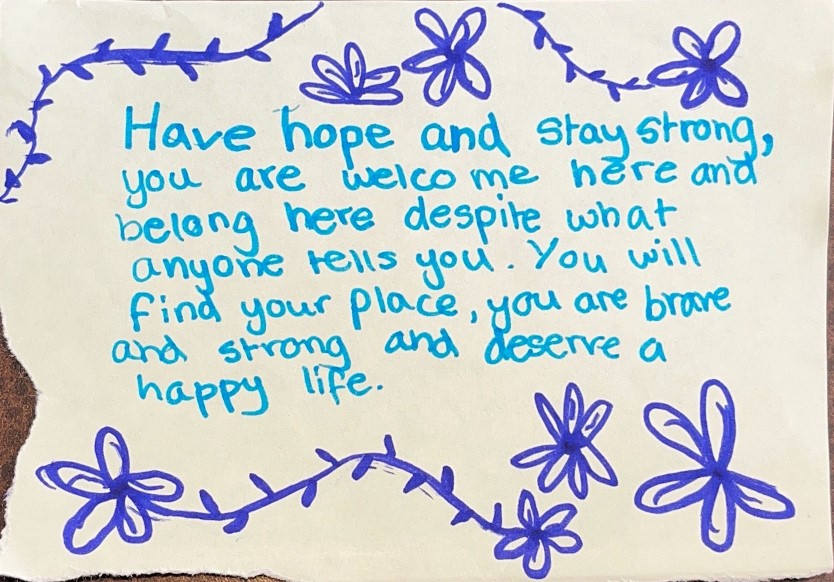 Have hope and stay strong,
you are welcome here and
belong here despite what
anyone tells you. You will
find your place, you are brave
and strong and deserve a
happy life.